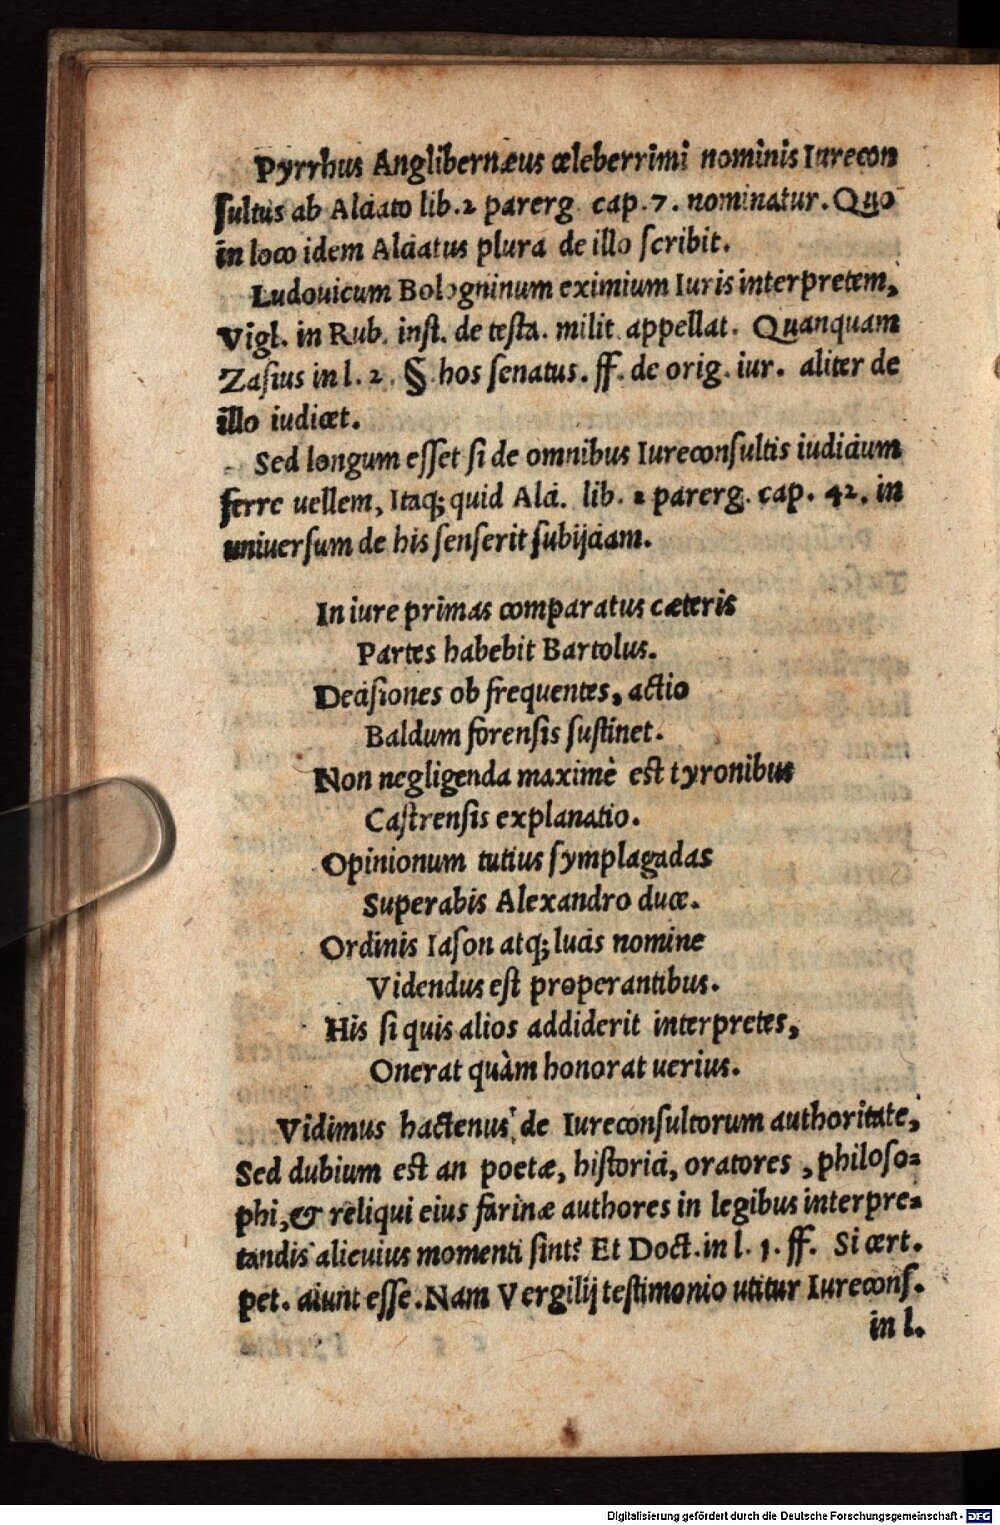 Pyrrhus Anglibernæus celeberrimi nominis Iurecon
sultus ab Alciato lib. 2 parerg cap. 7. nominatur. Quo
in loco idem Alciatus plura de illo scribit.
Ludouicum Bologninum eximium Iuris interpretem,
Vigl. in Rub. inst. de testa. milit. appellat. Quanquam
Zasius in l. 2. §. hos senatus. ff. de orig. iur. aliter de
illo iudicet.
Sed longum esset si de omnibus Iureconsultis iudicium
ferre uellem, Itaq; quid Alci. lib. 2 parerg. cap. 42. in
uniuersum de his senserit subijciam.
In iure primas comparatus cæteris
Partes habebit Bartolus.
Decisiones ob frequentes, actio
Baldum forensis sustinet.
Non negligenda maximè est tyronibus
Castrensis explanatio.
Opinionum tutius symplagadas
Superabis Alexandro duce.
Ordinis Iason atq; lucis nomine
Videndus est properantibus.
His si quis alios addiderit interpretes,
Onerat quàm honorat uerius.
Vidimus hactenus de Iureconsultorum authoritate,
Sed dubium est an poetæ, historici, oratores, philoso-
phi, & reliqui eius farinæ authores in legibus interpre-
tandis alicuius momenti sint? Et Doct. in l. 1. ff. Si cert.
pet. aiunt esse. Nam Vergilij testimonio utitur Iurecons.
in l.
Digitalisierung gefördert durch die Deutsche Forschungsgemeinschaft - DFG